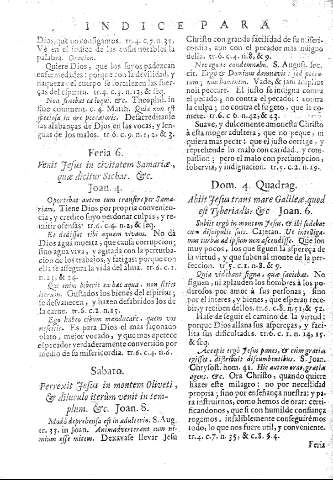 INDICE PARA
Dios, que no consigamos. tr. 4. c. 7. n. 31.
Vè en el indice de las cosas notables la
palabra. Oracion.
Quiere Dios, que los suyos padezcan
enfermedades: porque con la devilidad, y
flaqueza el cuerpo se fortalezcan las fuer-
ças del espiritu. tr. 4. c. 12. & seq.
Non putabat te loqui, &c. Theophil. in
hoc comment. c. 4. Matth. Quia non est
speciosa in ore peccatoris. Desacreditanse
las alabanças de Dios en las vocas, y len-
guas de los malos. tr. 6. c. 9. n. 2. & 3.
Feria 6.
Venit Jesus in civitatem Samariæ,
quæ dicitur Sichar. &c.
Joan. 4.
Oportebat autem eum transire per Sama-
riam. Tiene Dios por propria convenien-
cia, y credito suyo perdonar culpas, y re-
mitir ofensas: tr. 6. c. 4. n. 2. & seq.
Et dedisset tibi aquam vivam. No dà
Dios agua muerta, que cauta corrupcion;
sino agua viva, y agitada con la perturba-
cion de los trabajos, y fatigas: porque con
ella se asegura la vida del alma. tr. 6. c. 1.
n. 23. & 24.
Qui enim biberit ex hac aqua, non sitiet
iterum. Gustados los bienes del espiritu;
se desvanecen, y salen desabridos los de
la carne. tr. 6. c. 1. n.
Ego habeo cibum manducare, quem vos
nescitis. Es para Dios el mas saçonado
plato, mejor vocado, y que mas apetece
el pecador verdaderamente convertido por
medio de su misericordia. tr. 6. c. 4. n. 6.
Sabato.
Perrexit Jesus in montem Oliveti,
& diluculo iterum venit in tem-
plum. &c. Joan. 8.
Modò deprehensa est in adulterio. S. Aug.
tr. 33. in Joan. Animadverterunt eum ni-
mium esse mitem. Dexavase llevar Jesu
Christo con grande facilidad de su miseri-
cordia, aun con el pecador mas indigno
della. tr. 6. c. 4. n. 8. & 9.
Nec ego te condemnabo. A S. August. loc.
cit. Ergo & Dominus damnavit: sed pecca-
tum, non hominem. Vade, & jam amplius
noli peccare. El justo se indigna contra
el pecado; no contra el pecador: contra
la culpa; no contra el sugeto, que la co-
mete. tr. 6. c. 6. n. 42. & 43.
Suave, y dulcemente amonesta Christo
à esta muger adultera, que no peque, ni
quiera mas pecar: que el justo corrige, y
reprehende lo malo con caridad, y com-
passion; pero el malo con presumpcion,
sobervia, y indignacion. tr. 7. c. 2. n. 19.
Dom. 4. Quadrag.
Abiit Jesus trans mare Galileæ quod
est Tyberiadis: &c Joan. 6.
Subiit ergò in montem Jesus, et ibi sedebat
cum discipulis suis. Cajetan. Ut instiga-
mus turbas ad ipsum non ascendisse. Que son
muy pocos, los que siguen la aspereça de
la virtud, y que suben al monte de la per-
feccion. tr. 7. c. 1. n. 8. & 9.
Quia videbant signa, quæ faciebat. No
siguen, ni aplauden los hombres à los po-
derosos por amor à sus personas; sino
por el interes, y bienes, que esperan reco-
bir, y reciben dellos. tr. 6. c. 8. n. 51. & 52.
Hase de seguir el camino de la virtud;
porque Dios allana sus aspereças, y faci-
lita sus dificultades. tr. 6. c. 1. n. 14. 15.
& seq.
Accepit ergò Jesus panes, & cum gratias
egisset, distribuit discumbentibus. S. Joan.
Chrysost. hom. 41. Hic autem orat, gratias
agens, &c. Ora Christo, quando quiere
hazer este milagro: no por necessidad
propria; sino por enseñança nuestra: y pa-
ra instruirnos, como hemos de orar: certi-
ficandonos, que si con humilde confiança
rogamos, infaliblemente conseguirèmos
todo, lo que nos fuere util, y conveniente.
tr. 4. c. 7. n. 35. & c. 8. §. 4.
Feria